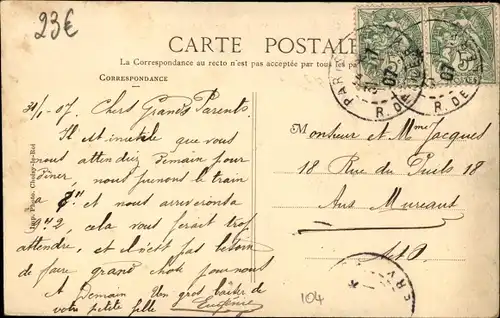 23€
CARTE POSTALE
La Correspondance au recto n'est pas acceptée par tous les
CORRESPONDANCE
31/1-07. Chers Grands Parents.
Il est inutile que vous
nous attendiez demain pour
dîner, nous prenons le train
à et nous arriverons à
9h2, cela vous ferait trop
attendre, et il n'est pas besoin
de faire grand chose pour nous
A Demain Un gros baiser de
votre petite fille Eugénie
Imp. Photo. Choisy-le-Roi
PARIS
07
R. DE
07
R. DE
Monsieur et Mme Jacques
18 Rue du Puits 18
Aux Mureaux
S&O.
104